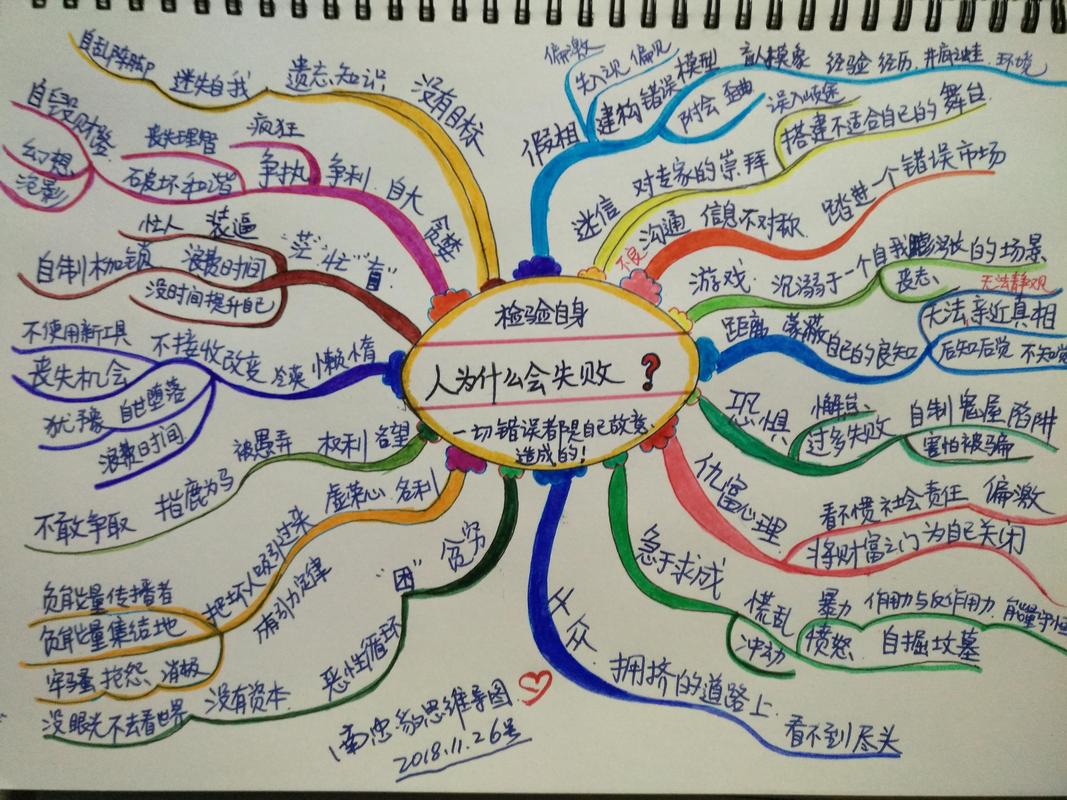 检验自身
人为什么会失败？
一切错误都是自己故意
造成的！
假相
偏激
先入观 偏见
建构错误模型
盲人摸象 经验 经历 井底之蛙 环境
附会 歪曲
迷信
对专家的崇拜
误入歧途
搭建不适合自己的舞台
不足
沟通 信息不对称
踏进一个错误市场
游戏 沉溺于一个自我膨胀的场景
丧志
无法静观
距离 蒙蔽自己的良知
无法亲近真相
后知后觉 不知觉
恐惧
懈怠
过多失败
自制鬼屋 陷阱
害怕被骗
仇富心理
看不惯社会责任 偏激
将财富之门为自己关闭
急于求成
慌乱
冲动
暴力 作用力与反作用力 能量守恒
愤怒 自掘坟墓
从众
拥挤的道路上
看不到尽头
贫穷
"困"
恶性循环
没有资本
没眼光不去看世界
虚荣心 名利
把坏人吸引过来
吸引力定律
负能量传播者
负能量集结地
牢骚 抱怨 消极
权利 欲望
被愚弄
指鹿为马
不敢争取
懒惰
不接收改变
不使用新工具
丧失机会
犹豫 自甘堕落
浪费时间
"茫" "忙" "盲"
忙人 装逼
浪费时间
自制枷锁
没时间提升自己
贪婪
争利 自大
争执
疯狂
丧失理智
破坏和谐
自毁财柱
幻想
泡影
没有目标
遗忘知识
迷失自我
自乱阵脚
2018.11.26号